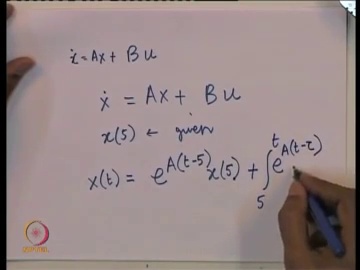 ẋ = Ax + Bu
ẋ = Ax + Bu
x(5) ← given
x(t) = e^{A(t-5)} x(5) + ∫_5^t e^{A(t-τ)}